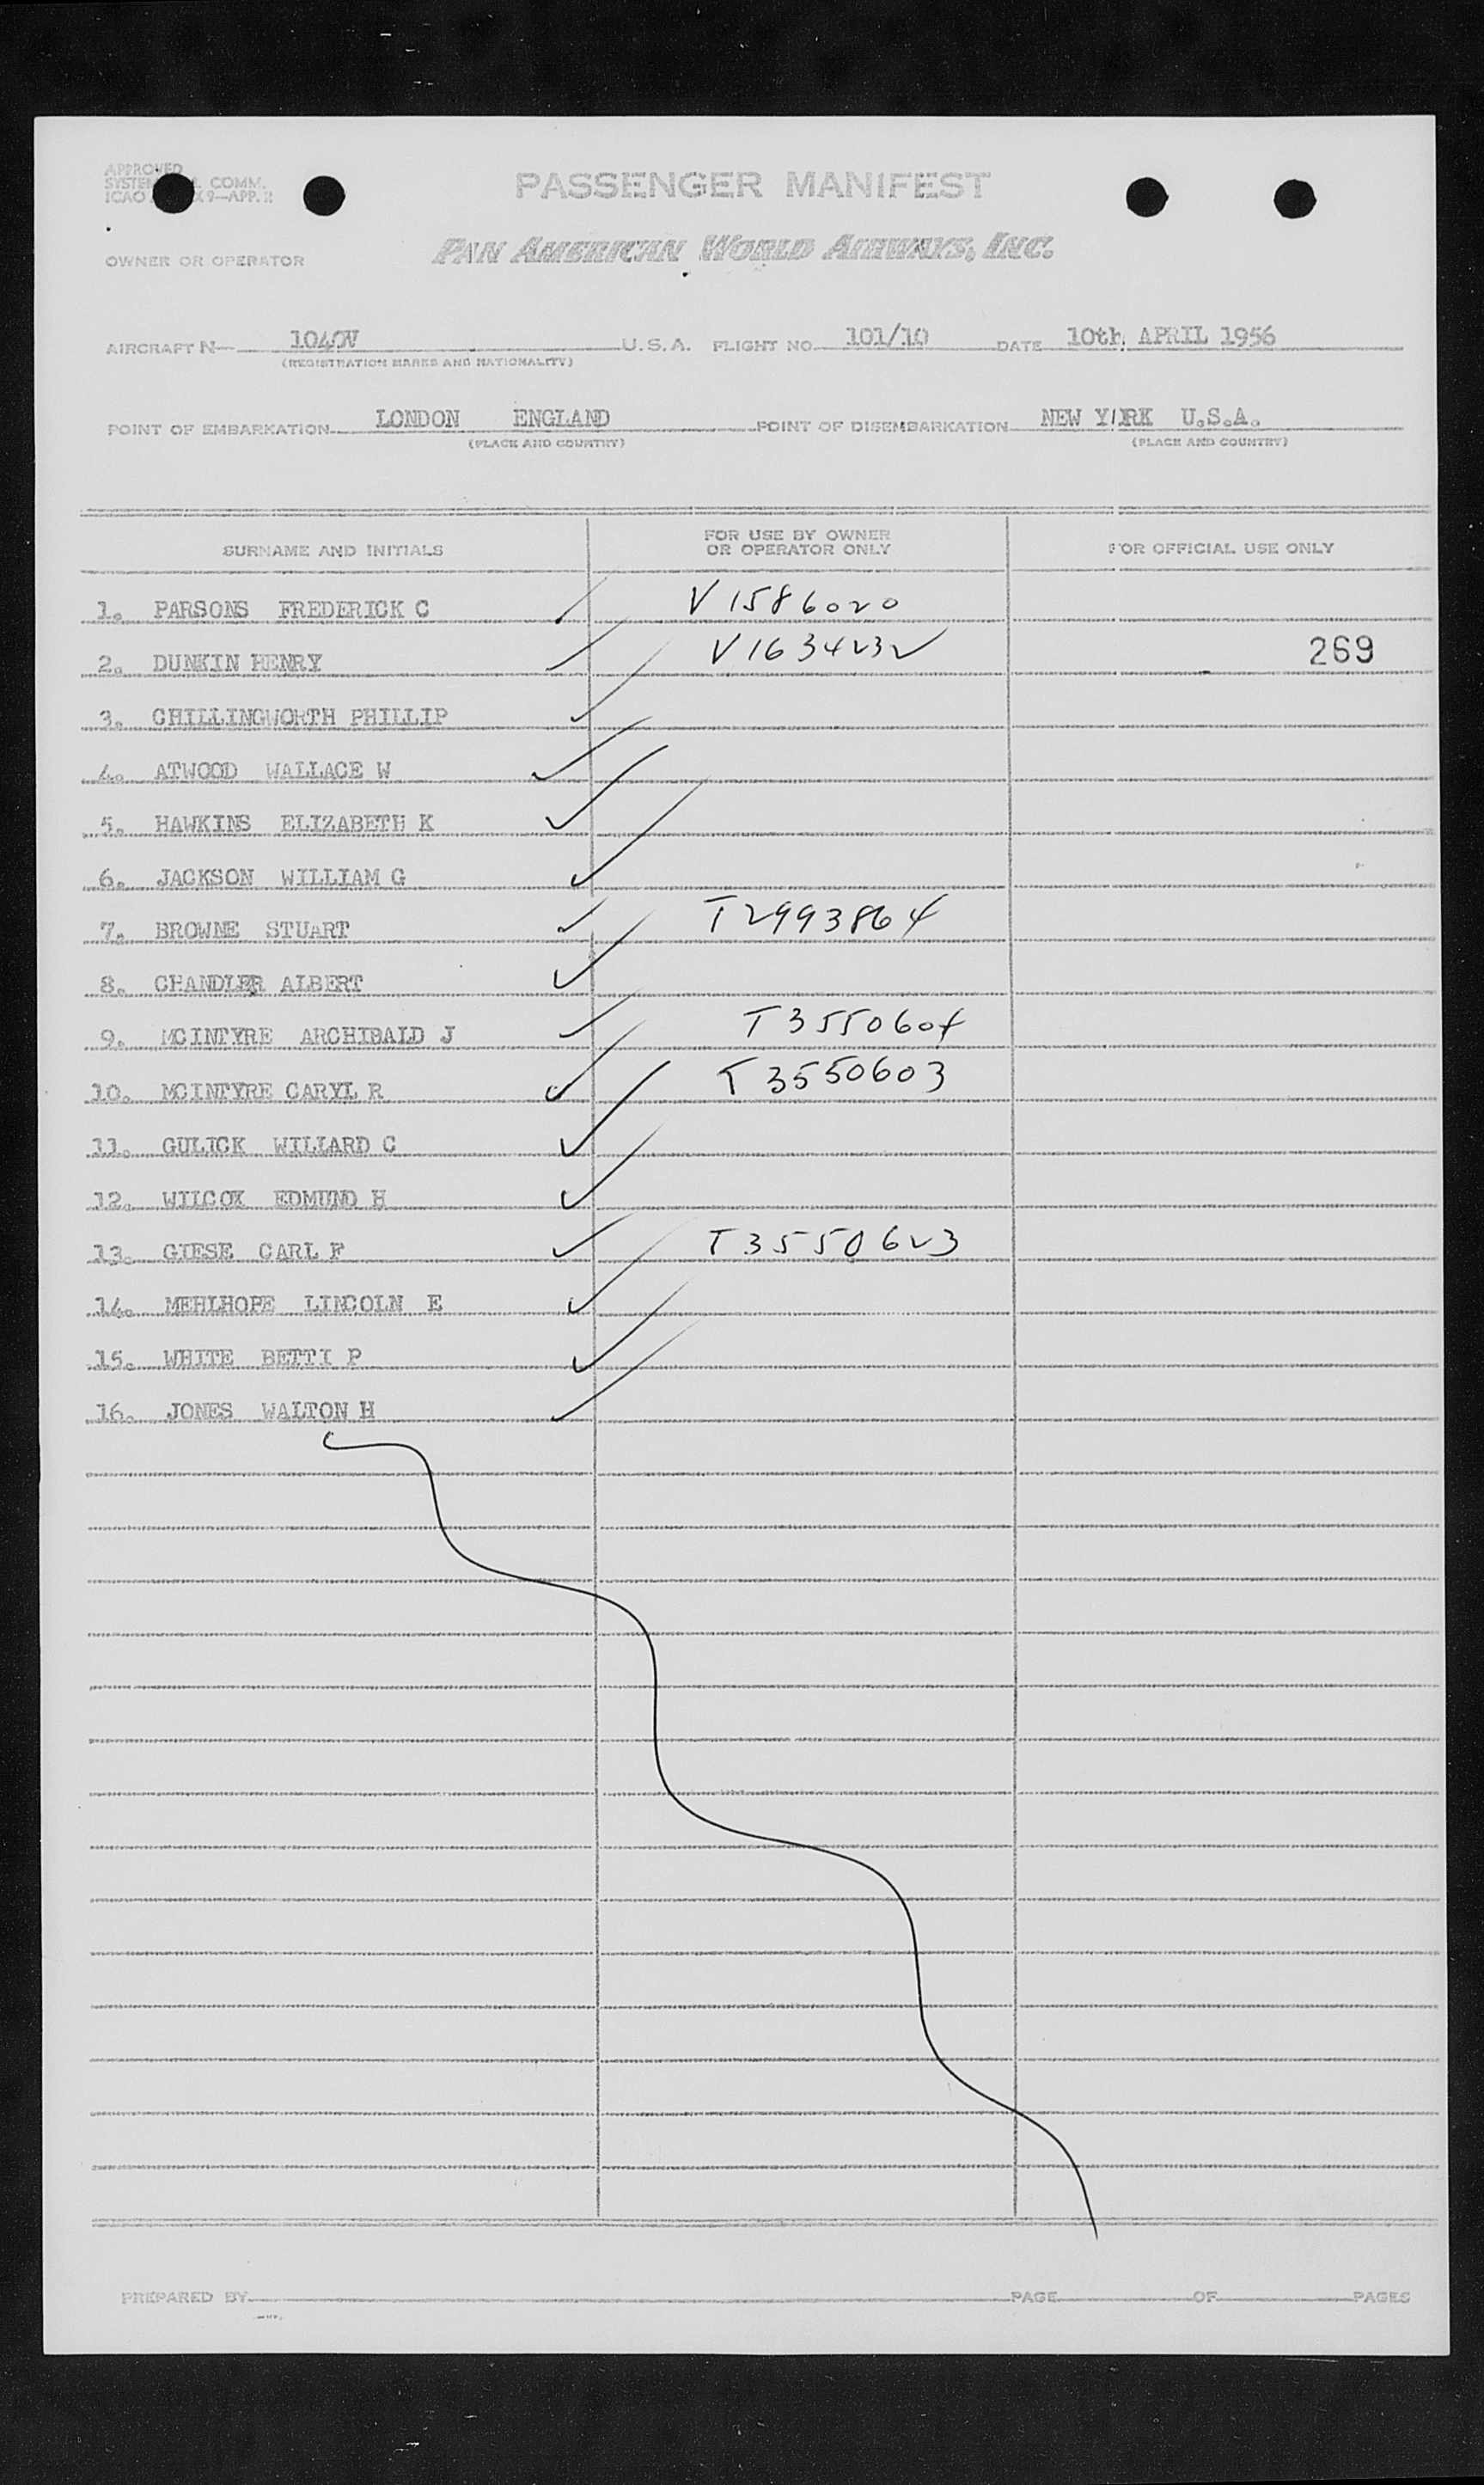 APPROVED
SYSTEM COMM.
ICAO 9—APP. 2
PASSENGER MANIFEST
OWNER OR OPERATOR PAN AMERICAN WORLD AIRWAYS, INC.
AIRCRAFT N— 1040V U.S.A. FLIGHT NO. 101/10 DATE 10th APRIL 1956
(REGISTRATION MARKS AND NATIONALITY)
POINT OF EMBARKATION LONDON ENGLAND POINT OF DISEMBARKATION NEW Y/RK U.S.A.
(PLACE AND COUNTRY) (PLACE AND COUNTRY)
SURNAME AND INITIALS FOR USE BY OWNER OR OPERATOR ONLY FOR OFFICIAL USE ONLY
1. PARSONS FREDERICK C V1586020
2. DUNKIN HENRY V1634232 269
3. CHILLINGWORTH PHILLIP
4. ATWOOD WALLACE W
5. HAWKINS ELIZABETH K
6. JACKSON WILLIAM G
7. BROWNE STUART T2993864
8. CHANDLER ALBERT
9. MCINTYRE ARCHIBALD J T3550604
10. MCINTYRE CARYL R T3550603
11. GULICK WILLARD C
12. WILCOX EDMUND H
13. GIESE CARL F T3550623
14. MEHLHOPE LINCOLN E
15. WHITE BETTI P
16. JONES WALTON H
PREPARED BY PAGE OF PAGES